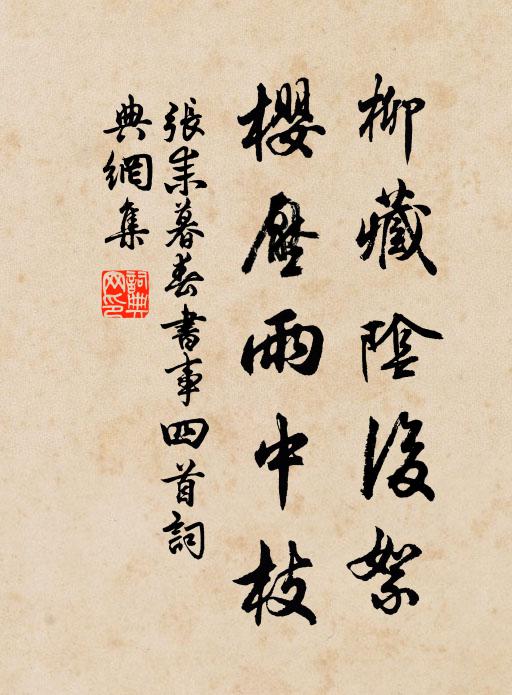 柳藏陰後絮
櫻壓雨中枝
張耒暮春書事四首詞
典網集
詞典網印